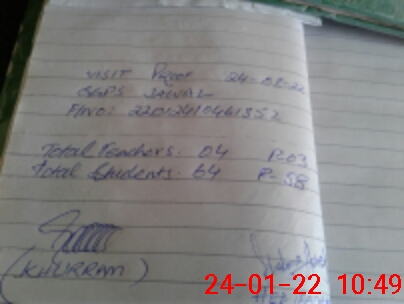 VISIT Proof 24-01-22
GGPS JAWAL
Total Teachers. 04 P-03
Total Students. 64 P-58
(KHURRAM)
24-01-22 10:49